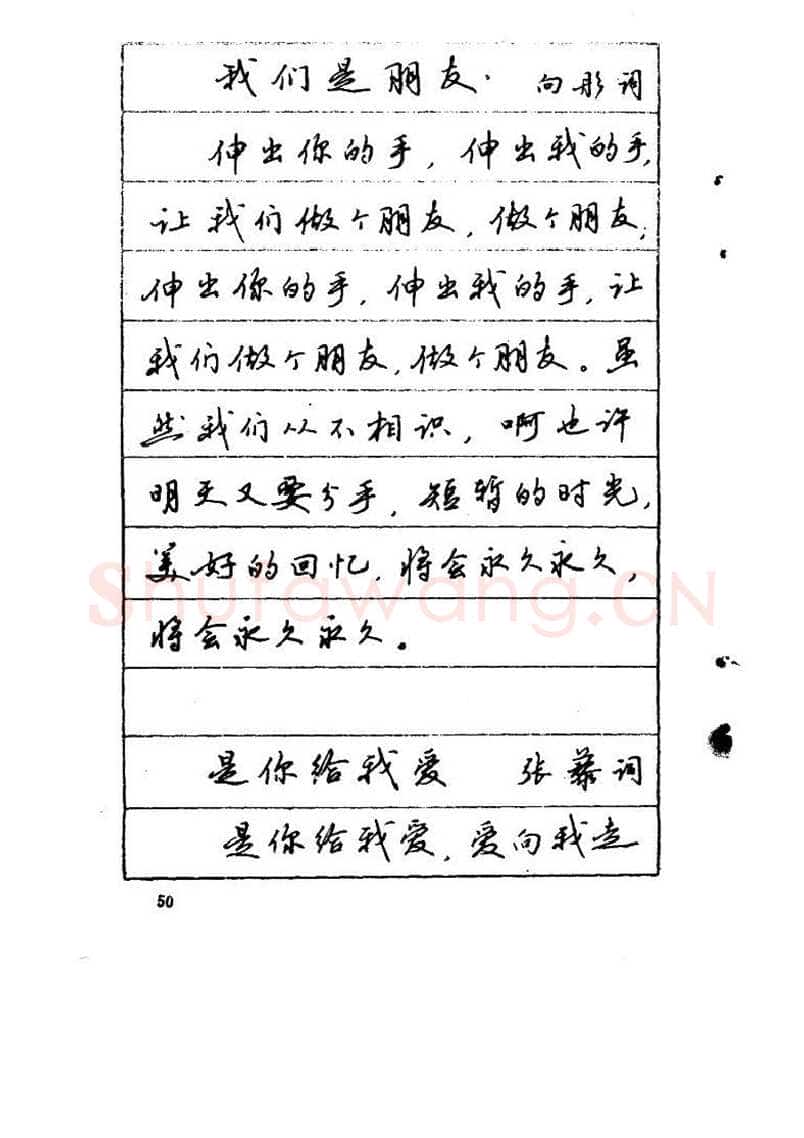 我们是朋友. 向彤词
伸出你的手，伸出我的手，
让我们做个朋友，做个朋友；
伸出你的手，伸出我的手，让
我们做个朋友，做个朋友。虽
然我们从不相识，啊也许
明天又要分手，短暂的时光，
美好的回忆，将会永久永久，
将会永久永久。
是你给我爱 张藜词
是你给我爱，爱向我走
50
Shufawang.CN